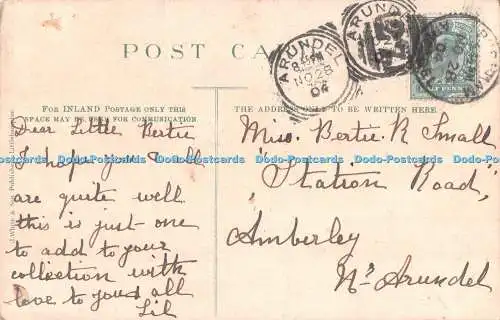 POST CARD
ARUNDEL
8. PM
NO 28
04
ARUNDEL
HALF PENNY
FOR INLAND POSTAGE ONLY THIS
SPACE MAY BE USED FOR COMMUNICATION
THE ADDRESS ONLY TO BE WRITTEN HERE
Dear Little Bertie
I hope you & all
are quite well
this is just one
to add to your
collection with
love to you & all
Lil
Miss. Bertie. R Small
"Station Road"
Amberley
Nr Arundel
Dodo-Postcards Dodo-Postcards Dodo-Postcards Dodo-Postcards